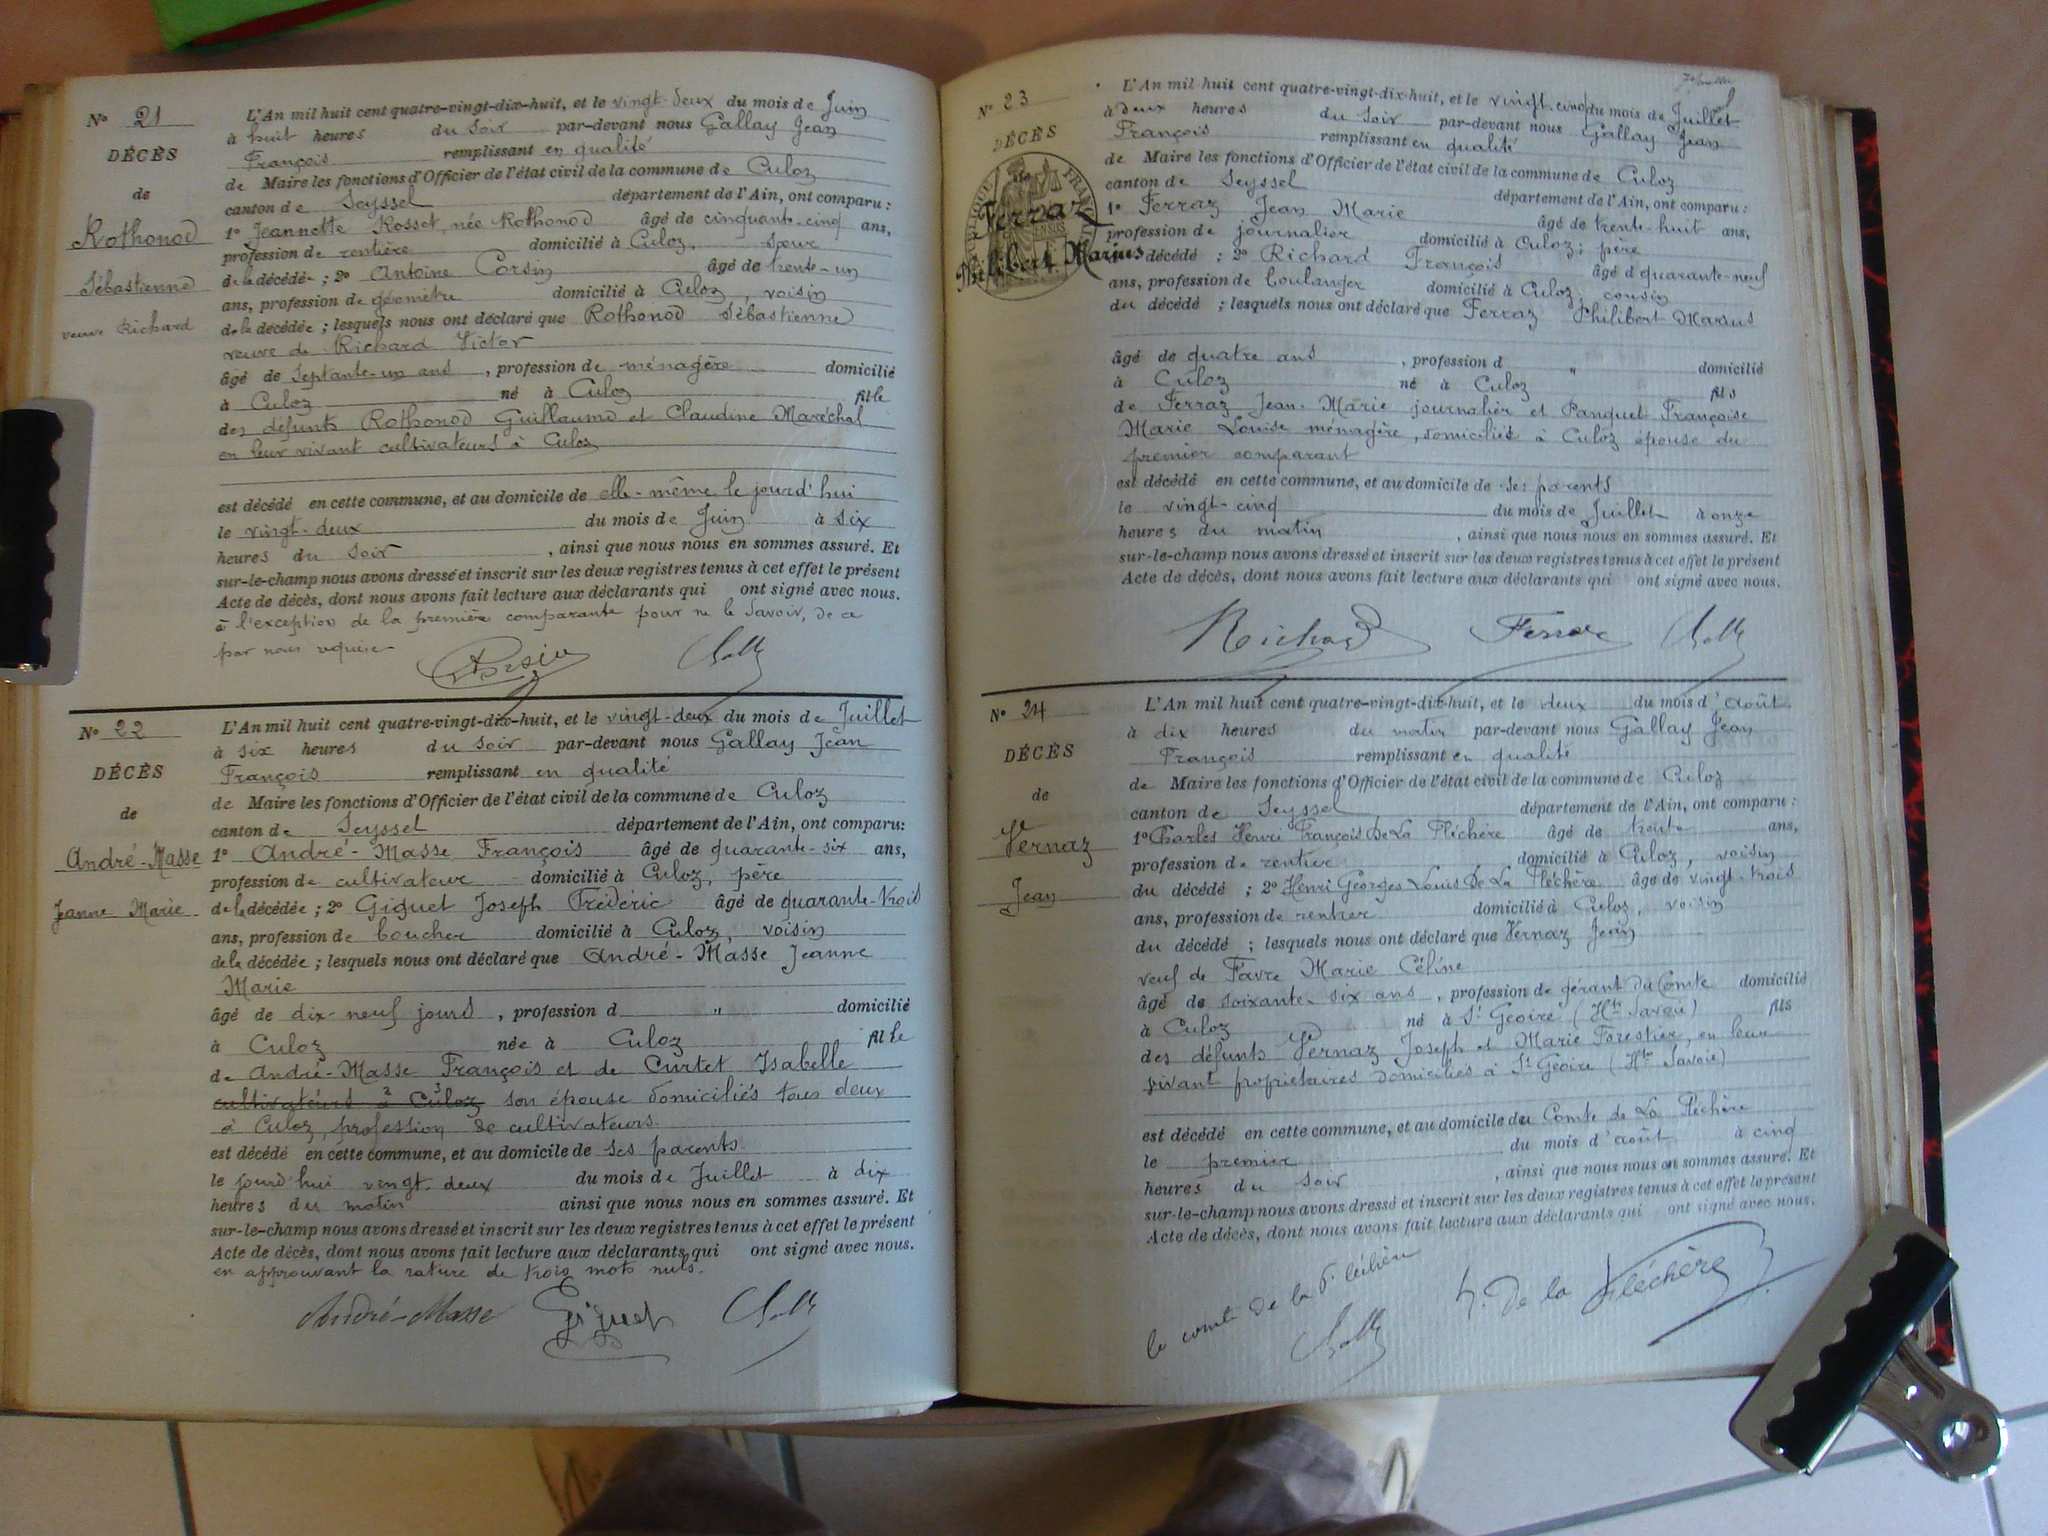 N° 21
DÉCÈS
de
Rothonod
Sébastienne
veuve Richard
L'An mil huit cent quatre-vingt-dix-huit, et le vingt-deux du mois de Juin
à huit heures du soir par-devant nous Gallay Jean
François remplissant en qualité
de Maire les fonctions d'Officier de l'état civil de la commune de Culoz
canton de Seyssel département de l'Ain, ont comparu :
1° Jeannette Rosset, née Rothonod âgé de cinquante-cinq ans,
profession de rentière domicilié à Culoz, sœur
de la décédée ; 2° Antoine Corsin âgé de trente-un
ans, profession de géomètre domicilié à Culoz, voisin
de la décédée ; lesquels nous ont déclaré que Rothonod Sébastienne
veuve de Richard Victor
âgé de septante-un ans, profession de ménagère domicilié
à Culoz né à Culoz fille
des défunts Rothonod Guillaume et Claudine Maréchal
en leur vivant cultivateurs à Culoz
est décédé en cette commune, et au domicile de elle-même le jourd'hui
le vingt-deux du mois de Juin à six
heures du soir, ainsi que nous nous en sommes assuré. Et
sur-le-champ nous avons dressé et inscrit sur les deux registres tenus à cet effet le présent
Acte de décès, dont nous avons fait lecture aux déclarants qui ont signé avec nous.
à l'exception de la première comparante pour ne le savoir, de ce
par nous requise
N° 22
DÉCÈS
de
André-Masse
Jeanne Marie
L'An mil huit cent quatre-vingt-dix-huit, et le vingt-deux du mois de Juillet
à six heures du soir par-devant nous Gallay Jean
François remplissant en qualité
de Maire les fonctions d'Officier de l'état civil de la commune de Culoz
canton de Seyssel département de l'Ain, ont comparu:
1° André-Masse François âgé de quarante-six ans,
profession de cultivateur domicilié à Culoz, père
de la décédée ; 2° Giguet Joseph Frédéric âgé de quarante-trois
ans, profession de boucher domicilié à Culoz, voisin
de la décédée ; lesquels nous ont déclaré que André-Masse Jeanne
Marie
âgé de dix-neuf jours, profession d " domicilié
à Culoz née à Culoz fille
de André-Masse François et de Curtet Isabelle
cultivateurs à Culoz son épouse domiciliés tous deux
à Culoz, profession de cultivateurs.
est décédé en cette commune, et au domicile de ses parents
le jourd'hui vingt-deux du mois de Juillet à dix
heures du matin ainsi que nous nous en sommes assuré. Et
sur-le-champ nous avons dressé et inscrit sur les deux registres tenus à cet effet le présent
Acte de décès, dont nous avons fait lecture aux déclarants qui ont signé avec nous.
en approuvant la rature de trois mots nuls.
André-Masse Giguet
N° 23
DÉCÈS
Ferraz
Philibert Marius
L'An mil huit cent quatre-vingt-dix-huit, et le vingt-cinq du mois de Juillet
à deux heures du soir par-devant nous Gallay Jean
François remplissant en qualité
de Maire les fonctions d'Officier de l'état civil de la commune de Culoz
canton de Seyssel département de l'Ain, ont comparu :
1° Ferraz Jean Marie âgé de trente-huit ans,
profession de journalier domicilié à Culoz; père
décédé ; 2° Richard François âgé d quarante-neuf
ans, profession de boulanger domicilié à Culoz; cousin
du décédé ; lesquels nous ont déclaré que Ferraz Philibert Marius
âgé de quatre ans, profession d " domicilié
à Culoz né à Culoz fils
de Ferraz Jean-Marie journalier et Panguet Françoise
Marie Louise ménagère, domiciliés à Culoz épouse du
premier comparant
est décédé en cette commune, et au domicile de ses parents
le vingt-cinq du mois de Juillet à onze
heures du matin, ainsi que nous nous en sommes assuré. Et
sur-le-champ nous avons dressé et inscrit sur les deux registres tenus à cet effet le présent
Acte de décès, dont nous avons fait lecture aux déclarants qui ont signé avec nous.
Richard Ferraz
N° 24
DÉCÈS
de
Vernaz
Jean
L'An mil huit cent quatre-vingt-dix-huit, et le deux du mois d'août
à dix heures du matin par-devant nous Gallay Jean
François remplissant en qualité
de Maire les fonctions d'Officier de l'état civil de la commune de Culoz
canton de Seyssel département de l'Ain, ont comparu :
1° Charles Henri François De La Fléchère âgé de trente ans,
profession de rentier domicilié à Culoz, voisin
du décédé ; 2° Henri Georges Louis De La Fléchère âgé de vingt-trois
ans, profession de rentier domicilié à Culoz, voisin
du décédé ; lesquels nous ont déclaré que Vernaz Jean
veuf de Favre Marie Céline
âgé de soixante-six ans, profession de gérant du Comte domicilié
à Culoz né à St Geoire (Hte Savoie) fils
des défunts Vernaz Joseph et Marie Forestier, en leur
vivant propriétaires domiciliés à St Geoire (Hte Savoie)
est décédé en cette commune, et au domicile du Comte de La Fléchère
le premier du mois d'août à cinq
heures du soir, ainsi que nous nous en sommes assuré. Et
sur-le-champ nous avons dressé et inscrit sur les deux registres tenus à cet effet le présent
Acte de décès, dont nous avons fait lecture aux déclarants qui ont signé avec nous.
le comte de la Fléchère
h. de la Fléchère